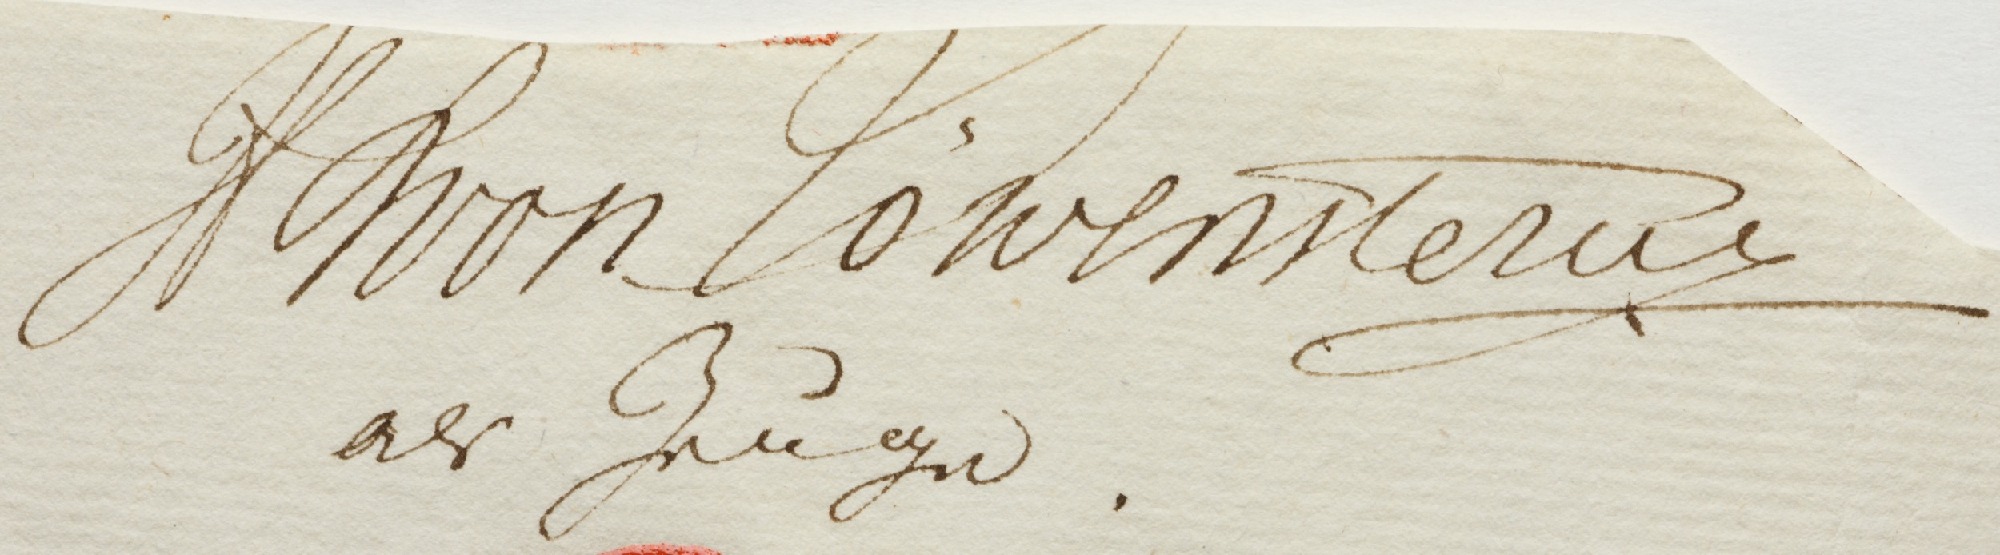 von Löwenstern
als Zeuge.